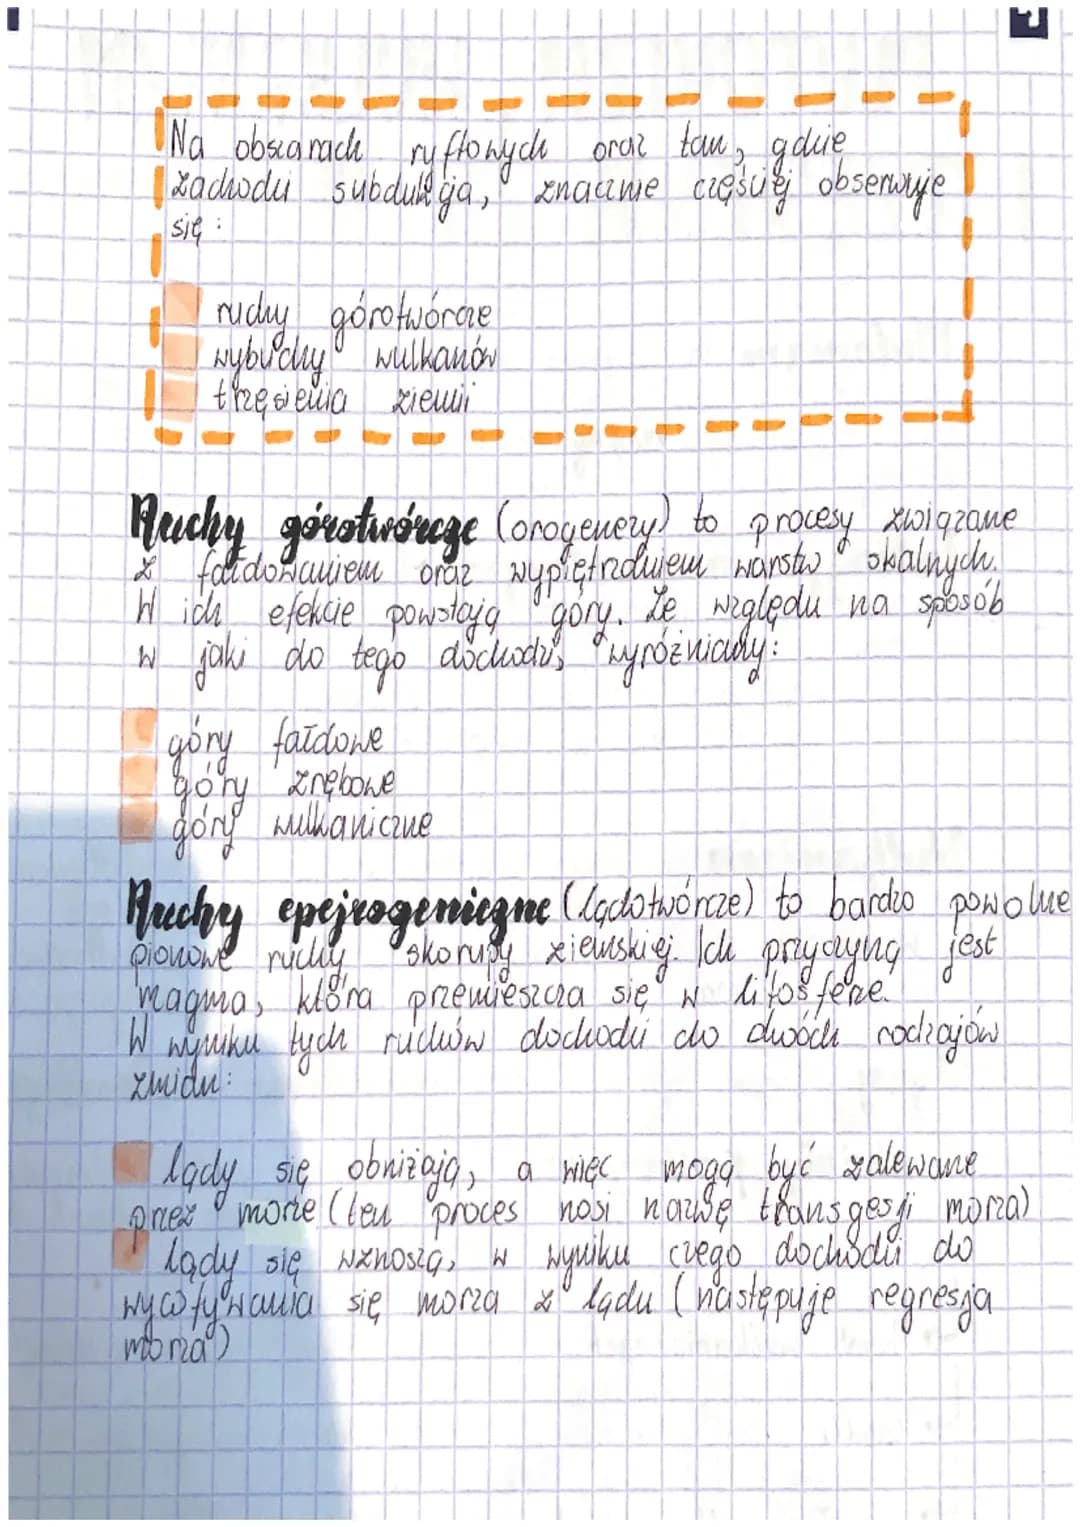 Na obszarach ryftowych oraz tam, gdzie
zachodzi subdukcja, znacznie częściej obserwuje
się:
ruchy górotwórcze
wybuchy wulkanów
trzęsienia ziemii
Ruchy górotwórcze (orogenezy) to procesy związane
z fałdowaniem oraz wypiętrzaniem warstw skalnych.
W ich efekcie powstają góry. Ze względu na sposób
w jaki do tego dochodzi, wyróżniamy:
góry fałdowe
góry zrębowe
góry wulkaniczne
Ruchy epejrogeniczne (lądotwórcze) to bardzo powolne
pionowe ruchy skorupy ziemskiej. Ich przyczyną jest
magma, która przemieszcza się w litosferze.
W wyniku tych ruchów dochodzi do dwóch rodzajów
zmian:
lądy się obniżają, a więc mogą być zalewane
przez morze (ten proces nosi nazwę transgesji morza)
lądy się wznoszą, w wyniku czego dochodzi do
wycofywania się morza z lądu (następuje regresja
morza)